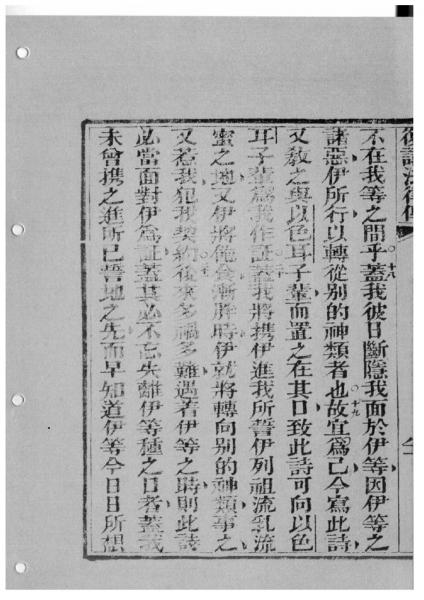 復講法律傳
不在我等之間乎蓋十八我彼日斷隱我面於伊等因伊等之
諸惡伊所行以轉從別的神類者也故十九宜爲己今寫此詩
又敎之與以色耳子輩而置之在其口致此詩可向以色
耳子輩爲我作証蓋我將携伊進我所誓伊列祖流乳流
蜜之地又伊將飽食漸胖時伊就將轉向別的神類事之
又惹我犯我契約後來多禍多難遇着伊等之時則此詩
必當面對伊爲証蓋其必不忘失離伊等種之口者蓋我
未曾携之進所已誓地之先而早知道伊等今日日所想